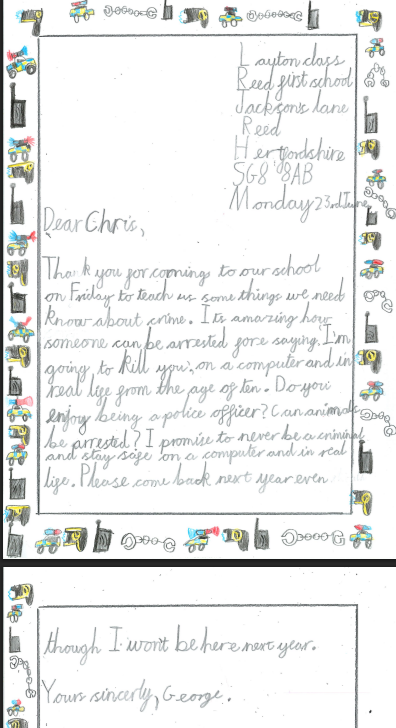 Layton class
Reed first school
Jackson's lane
Reed
Hertfordshire
SG8 8AB
Monday 23rd June
Dear Chris,
Thank you for comings to our school
on Friday to teach us some things we need
know about crime. Its amazing how
someone can be arrested fore saying, I'm
going to kill you', on a computer and in
real life from the age of ten. Do you
enjoy being a police officer? Can animals
be arrested? I promise to never be a criminal
and stay safe on a computer and in real
life. Please come back next year even
though I wont be here next year.
Yours sincerely, George.